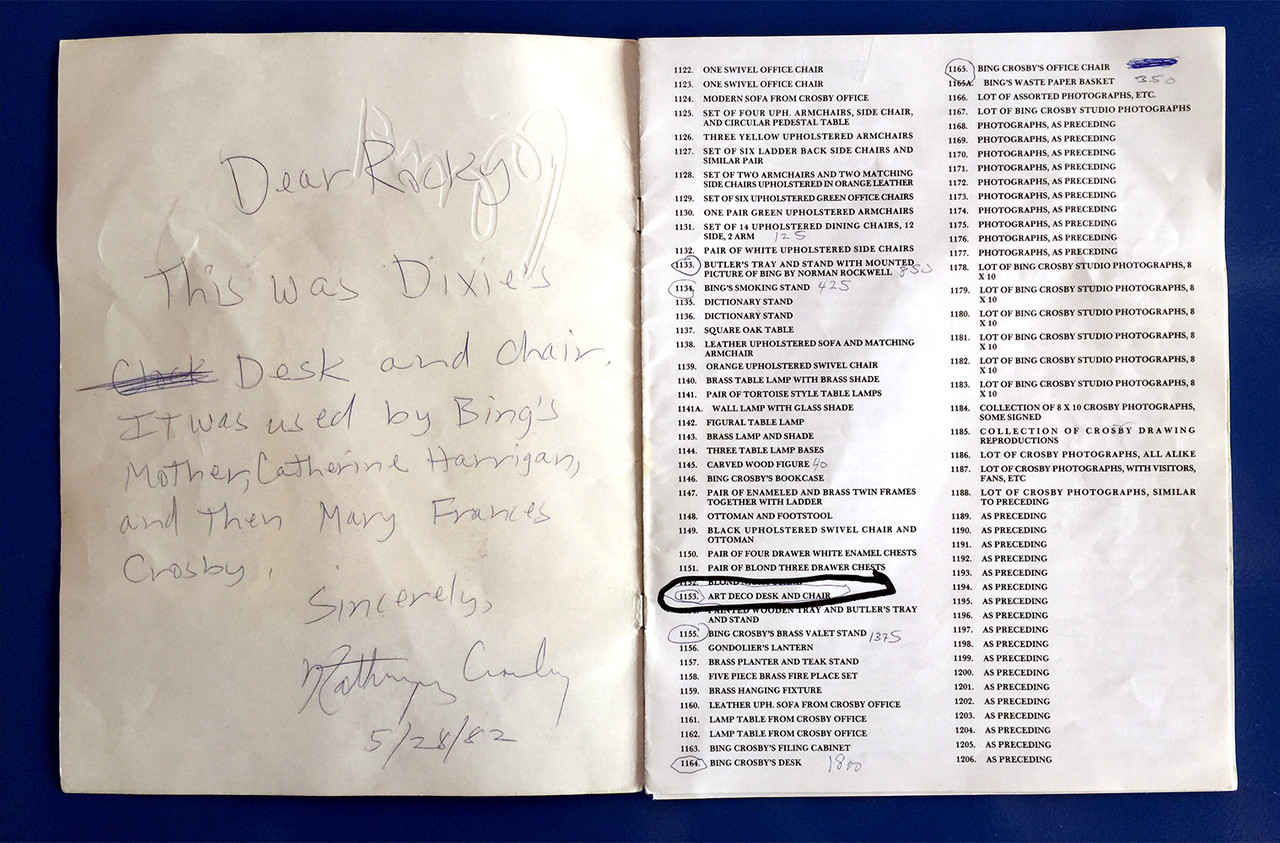 Dear Ricky
This was Dixie's
Desk and chair.
It was used by Bing's
Mother, Catherine Harrigan,
and then Mary Frances
Crosby.
Sincerely,
Kathryn Crosby
5/28/82
1122. ONE SWIVEL OFFICE CHAIR
1123. ONE SWIVEL OFFICE CHAIR
1124. MODERN SOFA FROM CROSBY OFFICE
1125. SET OF FOUR UPH. ARMCHAIRS, SIDE CHAIR,
AND CIRCULAR PEDESTAL TABLE
1126. THREE YELLOW UPHOLSTERED ARMCHAIRS
1127. SET OF SIX LADDER BACK SIDE CHAIRS AND
SIMILAR PAIR
1128. SET OF TWO ARMCHAIRS AND TWO MATCHING
SIDE CHAIRS UPHOLSTERED IN ORANGE LEATHER
1129. SET OF SIX UPHOLSTERED GREEN OFFICE CHAIRS
1130. ONE PAIR GREEN UPHOLSTERED ARMCHAIRS
1131. SET OF 14 UPHOLSTERED DINING CHAIRS, 12
SIDE, 2 ARM 125
1132. PAIR OF WHITE UPHOLSTERED SIDE CHAIRS
1133. BUTLER'S TRAY AND STAND WITH MOUNTED
PICTURE OF BING BY NORMAN ROCKWELL 850
1134. BING'S SMOKING STAND 425
1135. DICTIONARY STAND
1136. DICTIONARY STAND
1137. SQUARE OAK TABLE
1138. LEATHER UPHOLSTERED SOFA AND MATCHING
ARMCHAIR
1139. ORANGE UPHOLSTERED SWIVEL CHAIR
1140. BRASS TABLE LAMP WITH BRASS SHADE
1141. PAIR OF TORTOISE STYLE TABLE LAMPS
1141A. WALL LAMP WITH GLASS SHADE
1142. FIGURAL TABLE LAMP
1143. BRASS LAMP AND SHADE
1144. THREE TABLE LAMP BASES
1145. CARVED WOOD FIGURE 40
1146. BING CROSBY'S BOOKCASE
1147. PAIR OF ENAMELED AND BRASS TWIN FRAMES
TOGETHER WITH LADDER
1148. OTTOMAN AND FOOTSTOOL
1149. BLACK UPHOLSTERED SWIVEL CHAIR AND
OTTOMAN
1150. PAIR OF FOUR DRAWER WHITE ENAMEL CHESTS
1151. PAIR OF BLOND THREE DRAWER CHESTS
1152. BLOND
1153. ART DECO DESK AND CHAIR
PAINTED WOODEN TRAY AND BUTLER'S TRAY
AND STAND
1155. BING CROSBY'S BRASS VALET STAND 1375
1156. GONDOLIER'S LANTERN
1157. BRASS PLANTER AND TEAK STAND
1158. FIVE PIECE BRASS FIRE PLACE SET
1159. BRASS HANGING FIXTURE
1160. LEATHER UPH. SOFA FROM CROSBY OFFICE
1161. LAMP TABLE FROM CROSBY OFFICE
1162. LAMP TABLE FROM CROSBY OFFICE
1163. BING CROSBY'S FILING CABINET
1164. BING CROSBY'S DESK 1800
1165. BING CROSBY'S OFFICE CHAIR
1165A. BING'S WASTE PAPER BASKET 350
1166. LOT OF ASSORTED PHOTOGRAPHS, ETC.
1167. LOT OF BING CROSBY STUDIO PHOTOGRAPHS
1168. PHOTOGRAPHS, AS PRECEDING
1169. PHOTOGRAPHS, AS PRECEDING
1170. PHOTOGRAPHS, AS PRECEDING
1171. PHOTOGRAPHS, AS PRECEDING
1172. PHOTOGRAPHS, AS PRECEDING
1173. PHOTOGRAPHS, AS PRECEDING
1174. PHOTOGRAPHS, AS PRECEDING
1175. PHOTOGRAPHS, AS PRECEDING
1176. PHOTOGRAPHS, AS PRECEDING
1177. PHOTOGRAPHS, AS PRECEDING
1178. LOT OF BING CROSBY STUDIO PHOTOGRAPHS, 8
X 10
1179. LOT OF BING CROSBY STUDIO PHOTOGRAPHS, 8
X 10
1180. LOT OF BING CROSBY STUDIO PHOTOGRAPHS, 8
X 10
1181. LOT OF BING CROSBY STUDIO PHOTOGRAPHS, 8
X 10
1182. LOT OF BING CROSBY STUDIO PHOTOGRAPHS, 8
X 10
1183. LOT OF BING CROSBY STUDIO PHOTOGRAPHS, 8
X 10
1184. COLLECTION OF 8 X 10 CROSBY PHOTOGRAPHS,
SOME SIGNED
1185. COLLECTION OF CROSBY DRAWING
REPRODUCTIONS
1186. LOT OF CROSBY PHOTOGRAPHS, ALL ALIKE
1187. LOT OF CROSBY PHOTOGRAPHS, WITH VISITORS,
FANS, ETC
1188. LOT OF CROSBY PHOTOGRAPHS, SIMILAR
TO PRECEDING
1189. AS PRECEDING
1190. AS PRECEDING
1191. AS PRECEDING
1192. AS PRECEDING
1193. AS PRECEDING
1194. AS PRECEDING
1195. AS PRECEDING
1196. AS PRECEDING
1197. AS PRECEDING
1198. AS PRECEDING
1199. AS PRECEDING
1200. AS PRECEDING
1201. AS PRECEDING
1202. AS PRECEDING
1203. AS PRECEDING
1204. AS PRECEDING
1205. AS PRECEDING
1206. AS PRECEDING